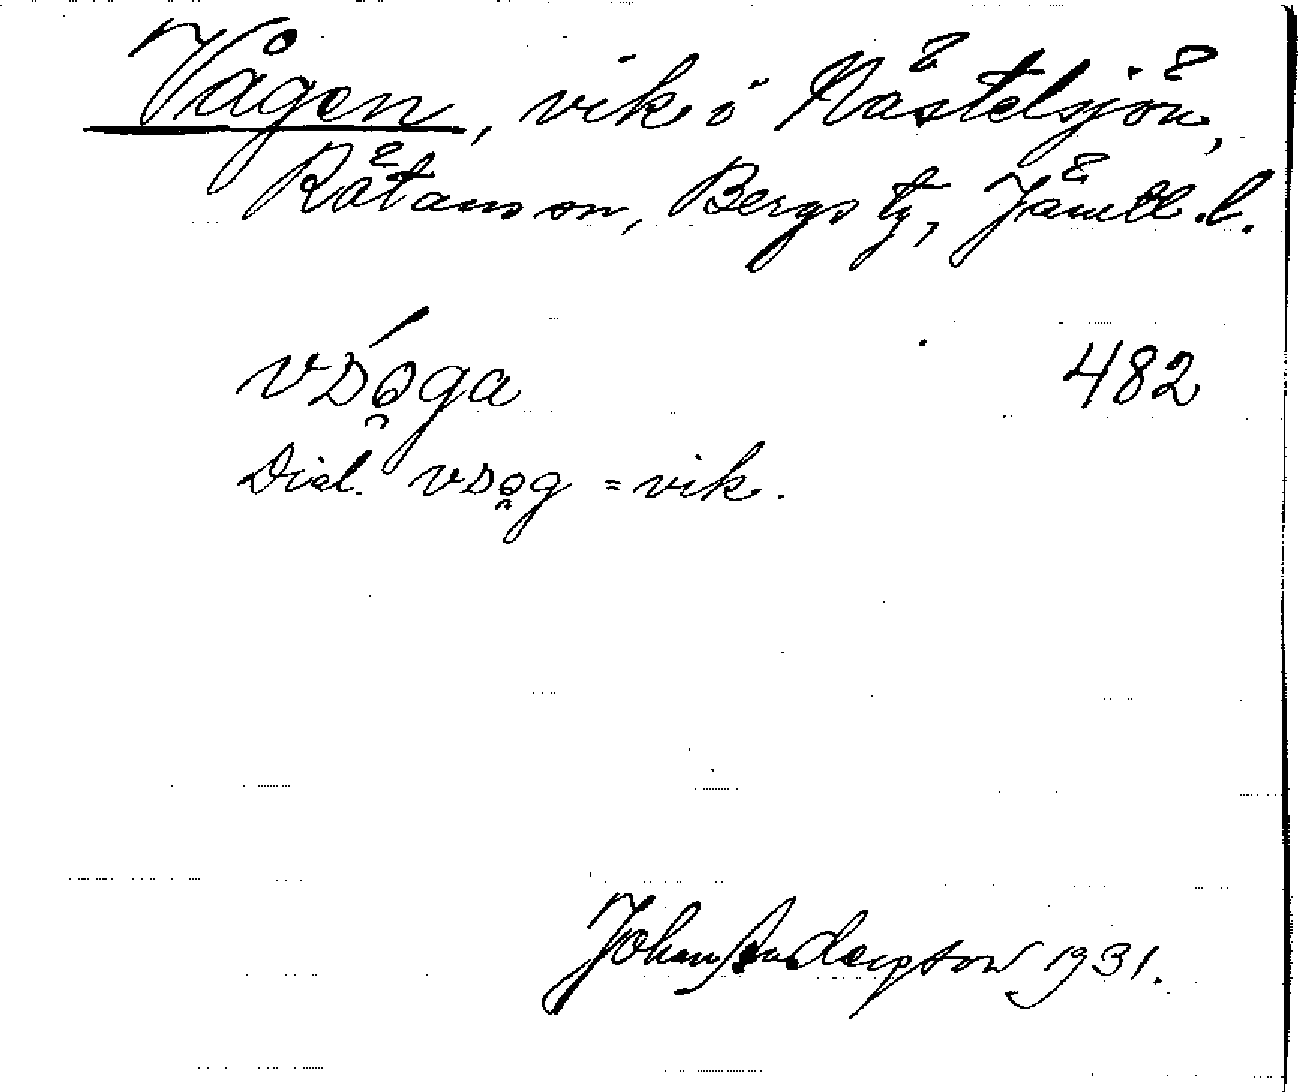 Vågen, vik i Nästelsjön,
Rätans sn, Bergs tg, Jämtl. l.
482
Dial. = vik.
Johan Andersson 1931.